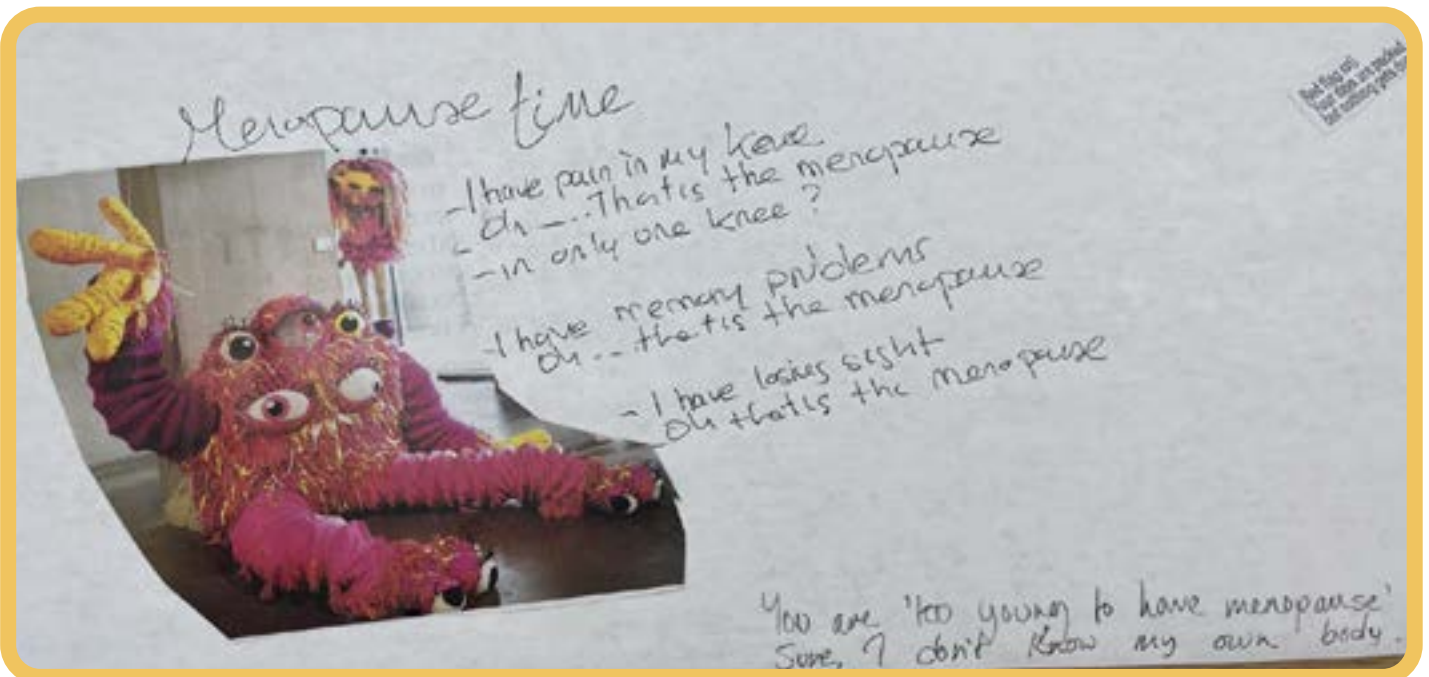 Menopause time
- I have pain in my knee
- Oh -... That is the menopause
- in only one knee?
- I have memory problems
Oh ... that is the menopause
- I have losing sight
- Oh that is the menopause
You are 'too young to have menopause'
Sure, I don't know my own body.
Red flag on!
but nothing gets